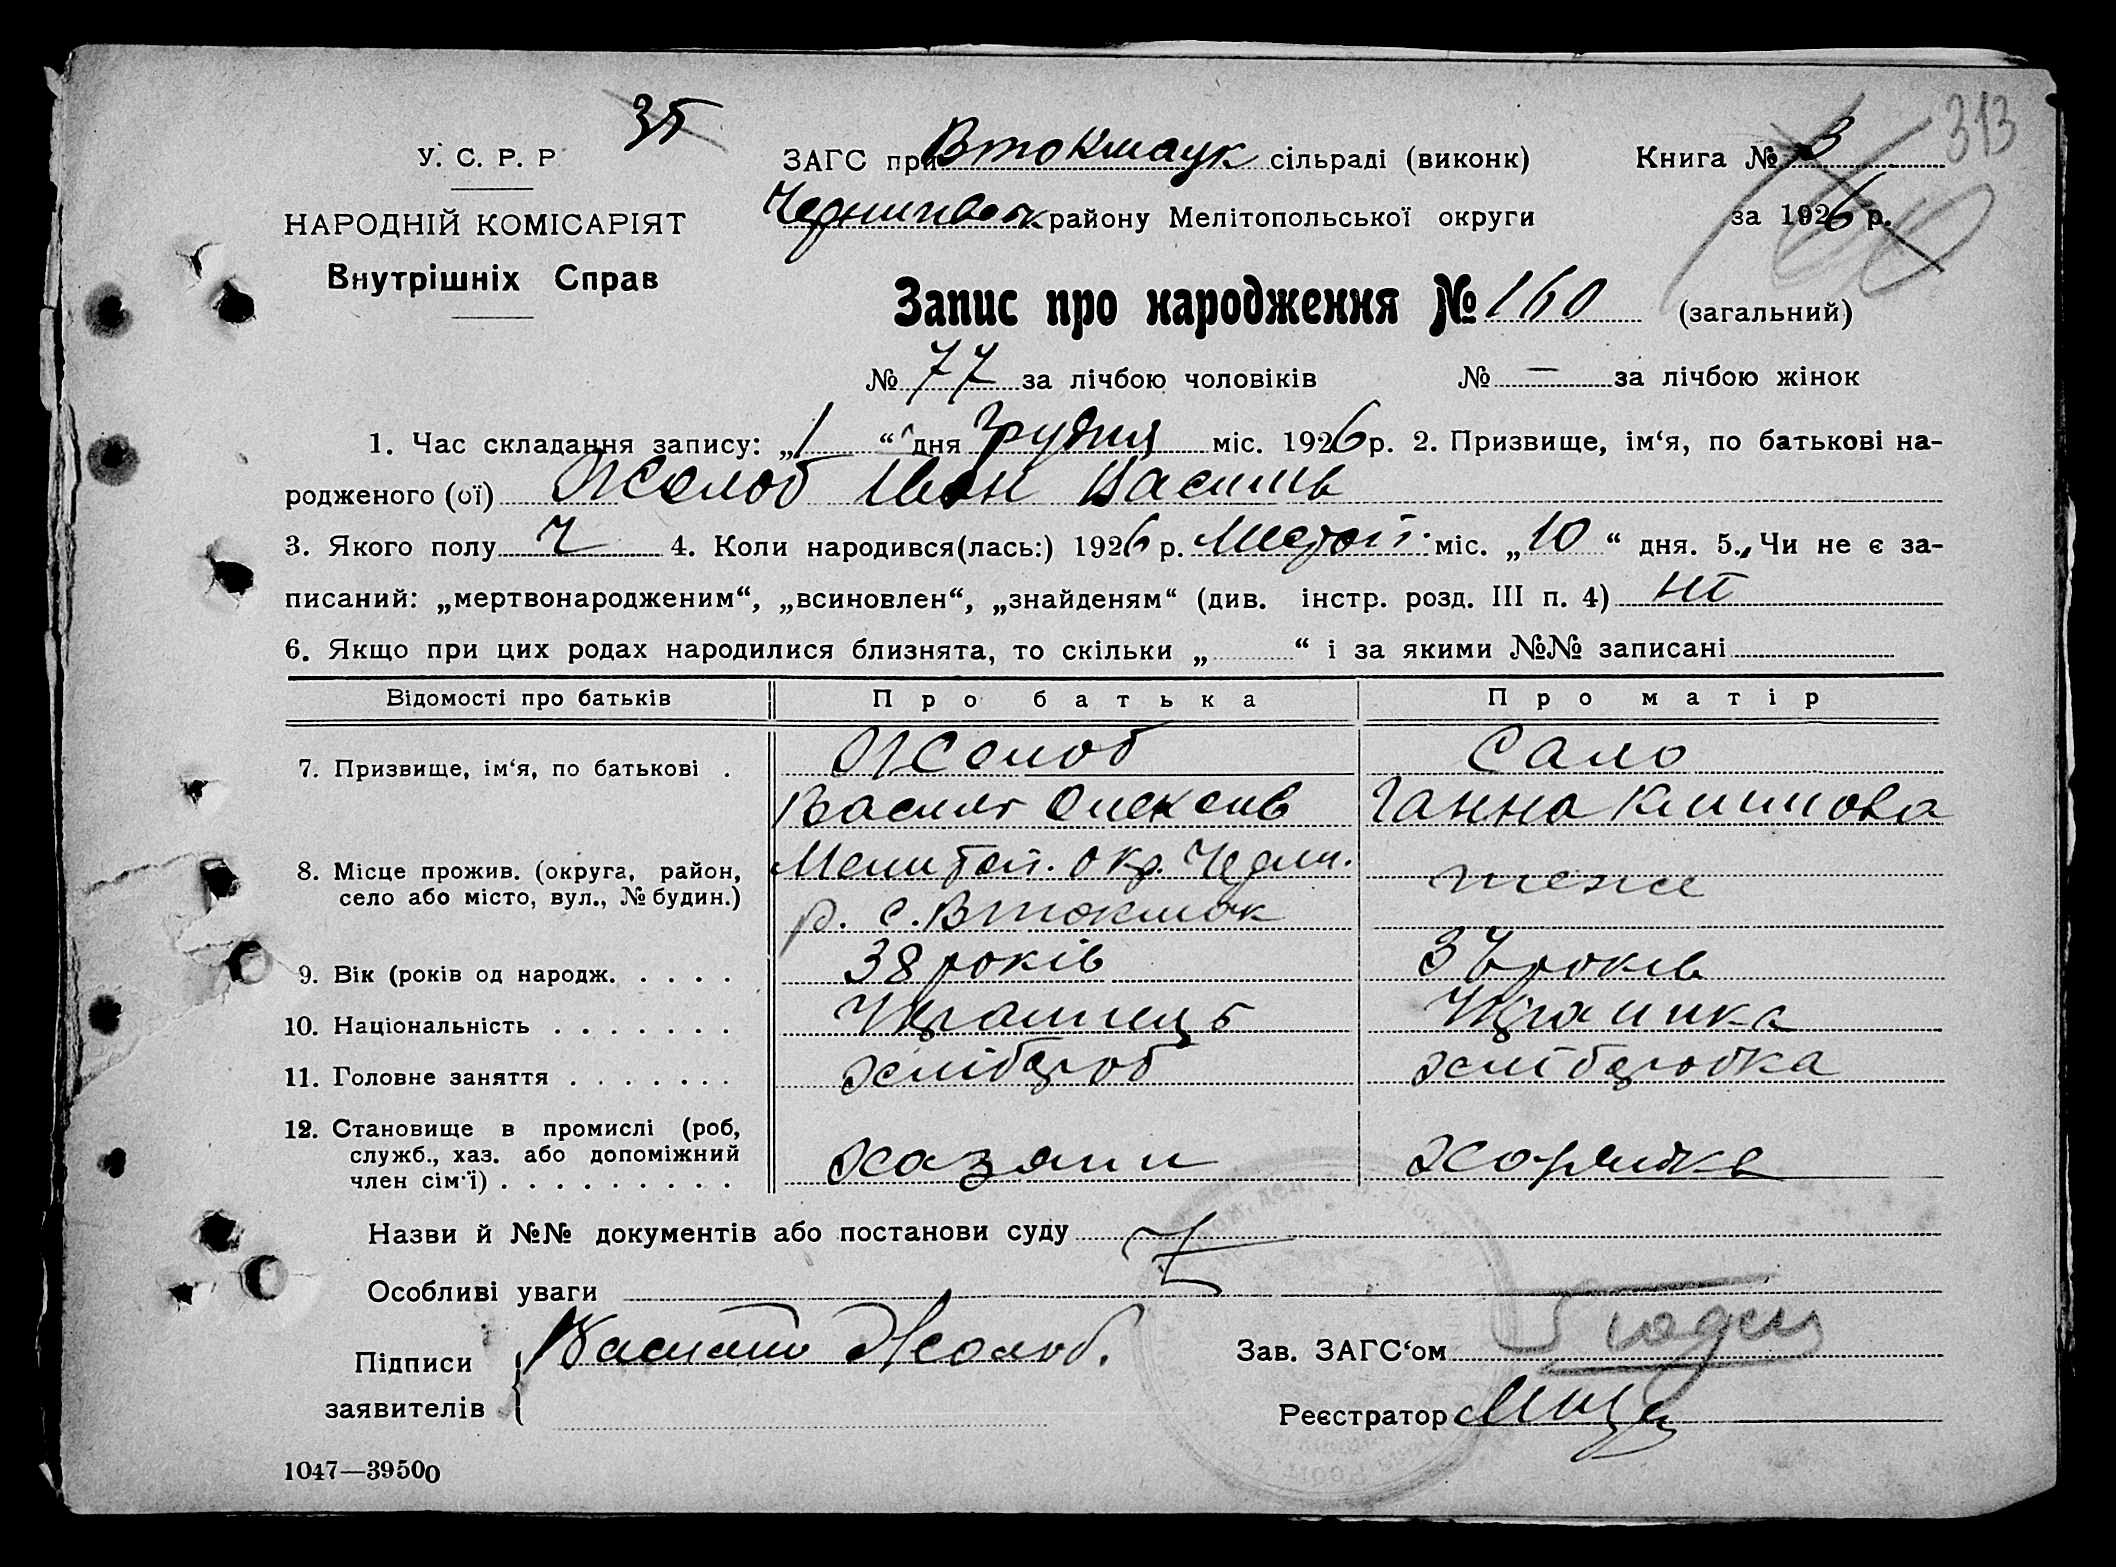 35
313
У. С. Р. Р
НАРОДНІЙ КОМІСАРІЯТ
Внутрішніх Справ
ЗАГС при Втокмаук сільраді (виконк)
Чернигівськ району Мелітопольської округи
Книга № 3
за 1926 р.
Запис про народження № 160 (загальний)
№ 77 за лічбою чоловіків № — за лічбою жінок
1. Час складання запису: „1“ дня Грудня міс. 1926 р. 2. Призвище, ім‘я, по батькові на-
родженого (ої) Жолоб Іван Василів
3. Якого полу Ч 4. Коли народився(лась:) 1926 р. міс. „10“ дня. 5. Чи не є за-
писаний: „мертвонародженим“, „всиновлен“, „знайденям“ (див. інстр. розд. III п. 4) ні
6. Якщо при цих родах народилися близнята, то скільки „ “ і за якими №№ записані
Відомості про батьків Про батька Про матір
7. Призвище, ім‘я, по батькові . Жолоб Сало
Василь Олексів Ганна Климова
8. Місце прожив. (округа, район, Мелитоп. окр. Черни.
село або місто, вул., № будин.) р. с. Втокмак теже
9. Вік (років од народж. . . . . 38 років років
10. Національність . . . . . . . Українець Українка
11. Головне заняття . . . . . . . хлібороб хліборобка
12. Становище в промислі (роб,
служб., хаз. або допоміжний хазяин хозяйка
член сім‘ї) . . . . . . . . .
Назви й №№ документів або постанови суду
Особливі уваги
Підписи
заявителів
Жолоб.
Зав. ЗАГС‘ом
Реєстратор
1047—39500